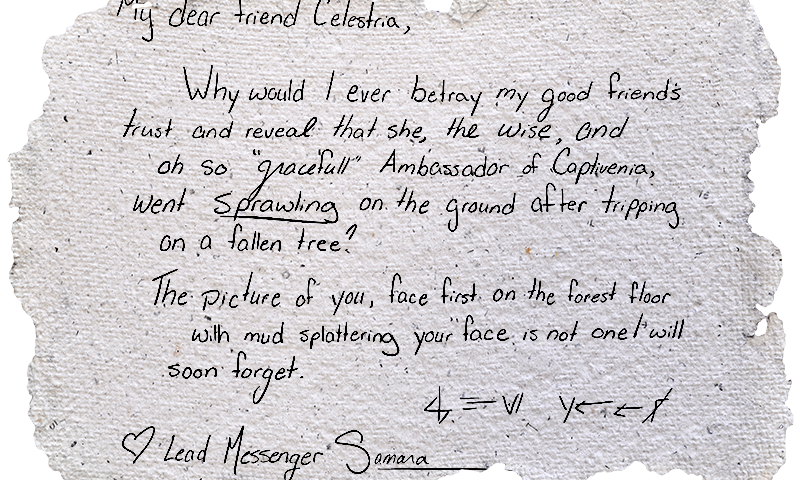 My dear friend Celestria,
Why would I ever betray my good friend's
trust and reveal that she, the wise, and
oh so "gracefull" Ambassador of Captivenia,
went Sprawling on the ground after tripping
on a fallen tree?
The picture of you, face first on the forest floor
with mud splattering your face is not one I will
soon forget.
♡ Lead Messenger Samara